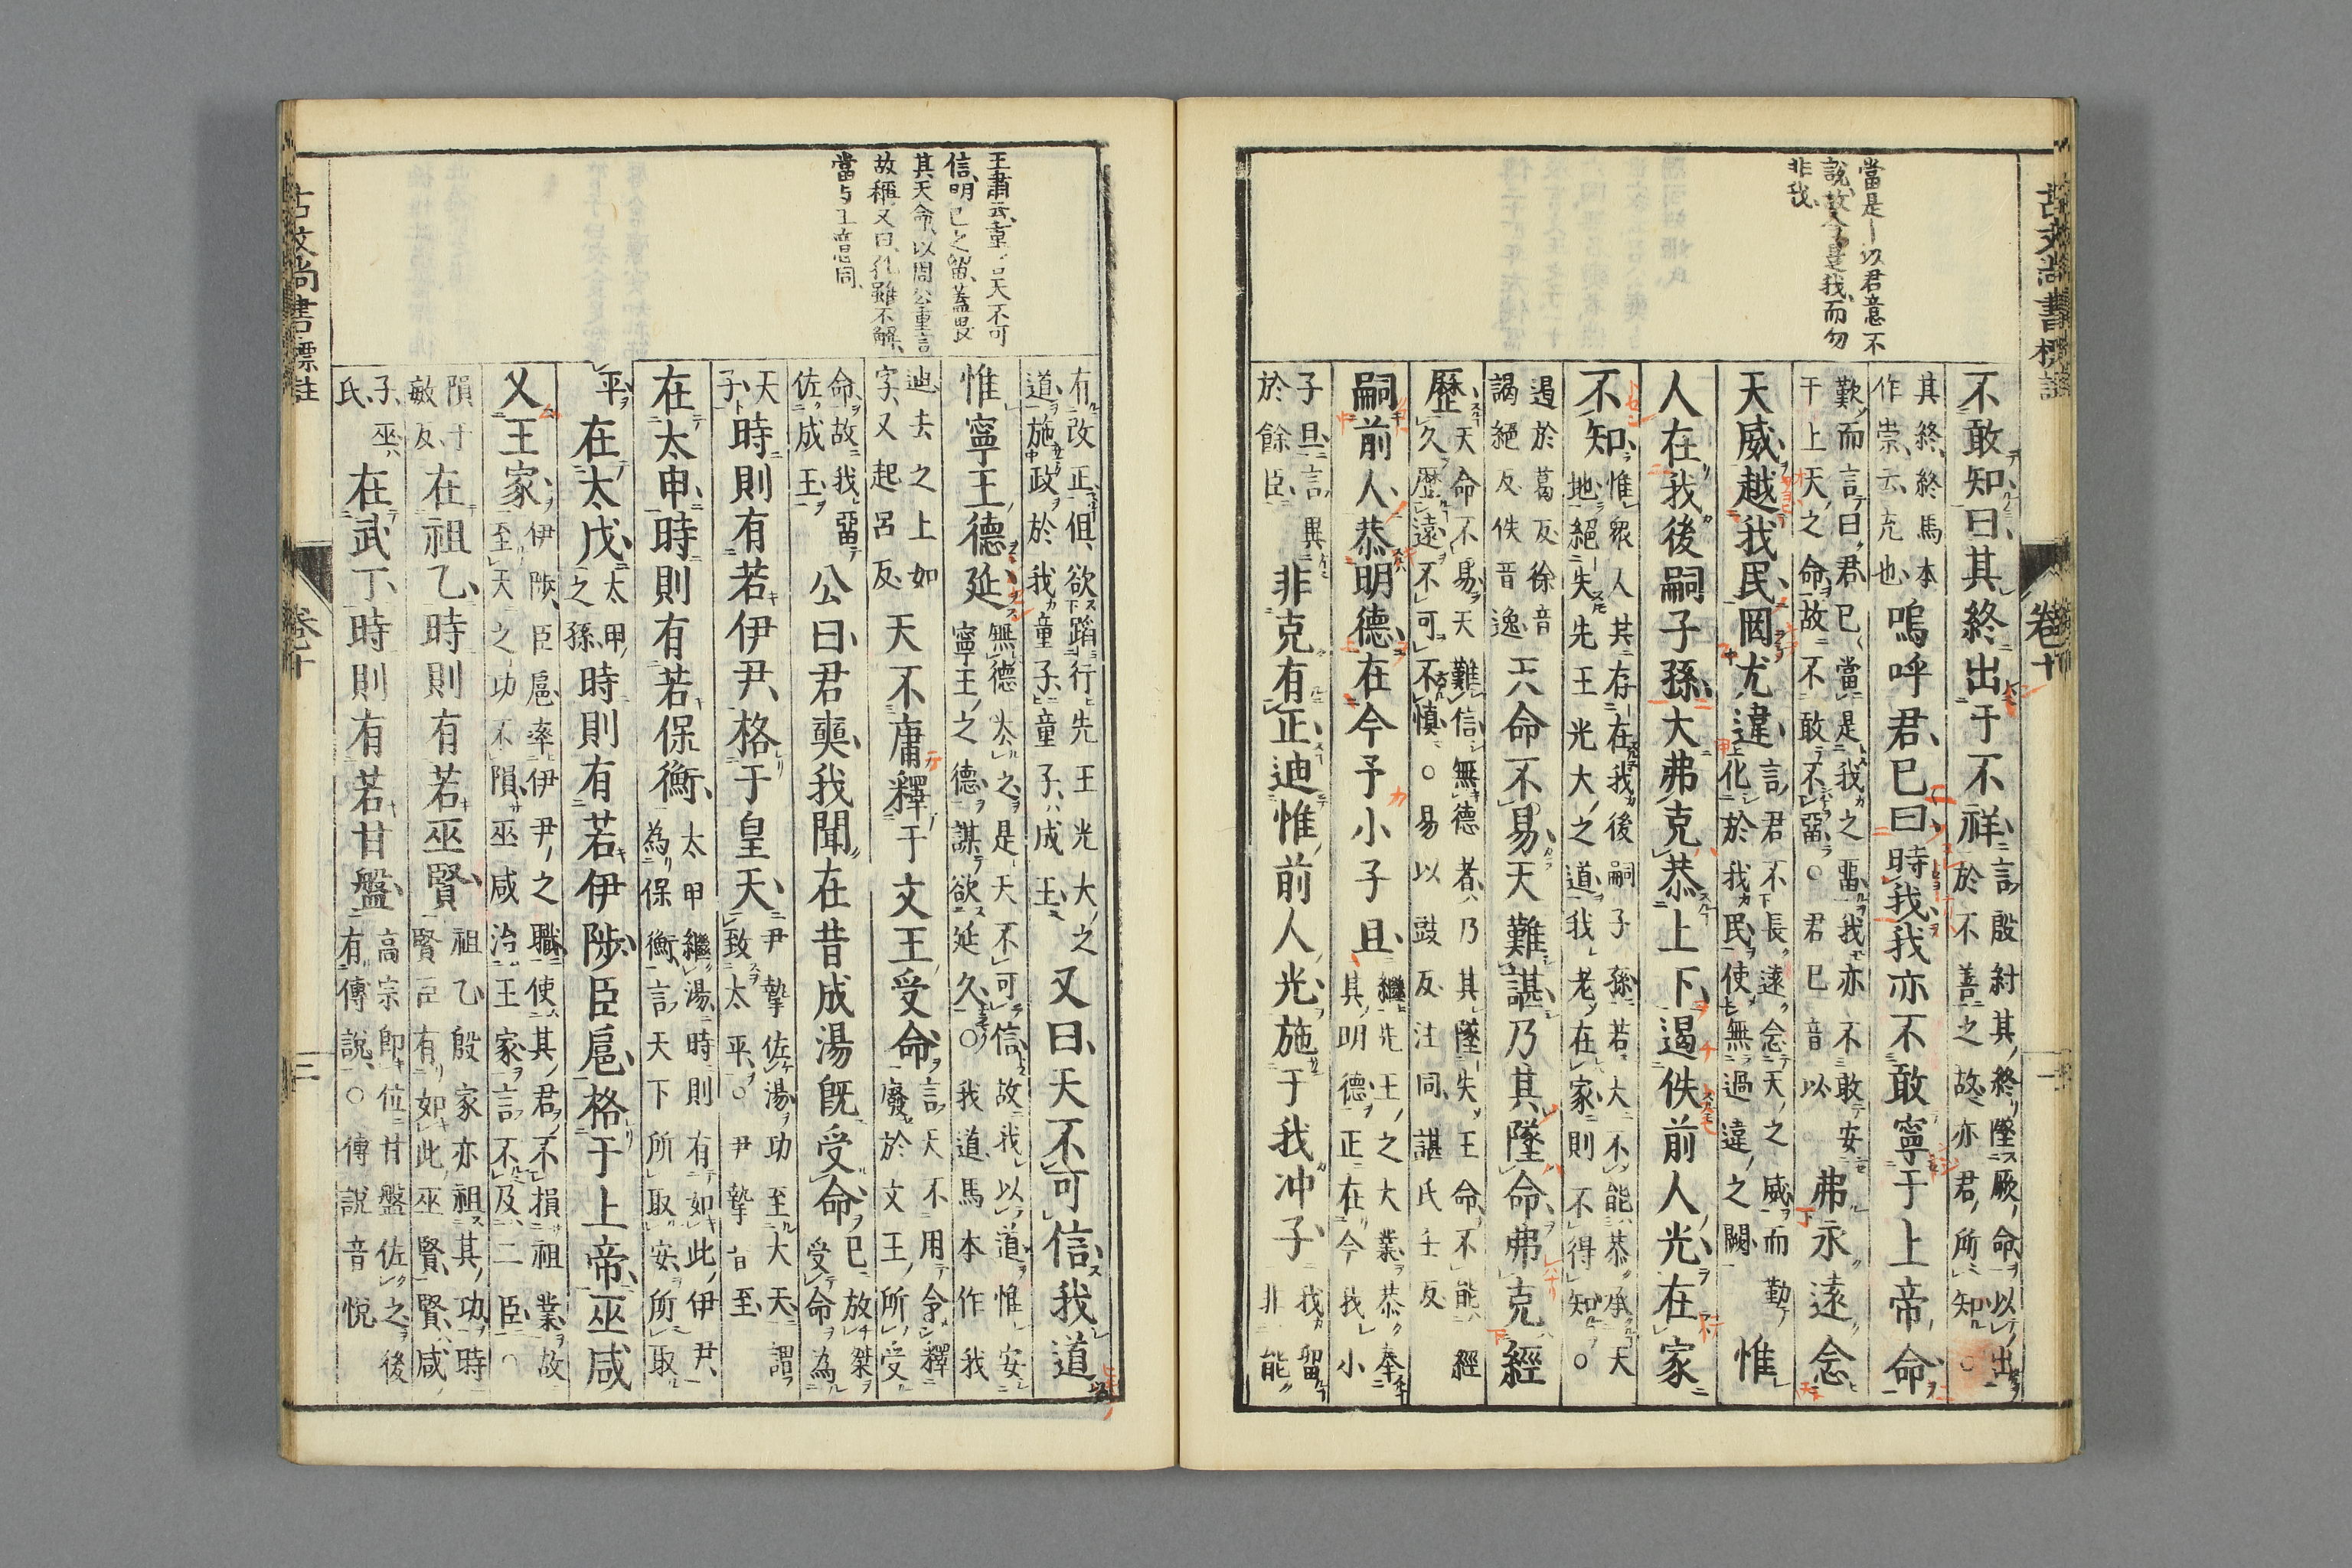 古文尚書標註
卷十
二
當是｜以君意不
說、故令是我、而勿
非我、
不敢知曰其終出于不祥言殷紂其終墜厥命以出
於不善之故亦君所知○
其終終馬本
作崇云充也
嗚呼君已曰時我我亦不敢寧于上帝命
歎而言曰君已當是我之留我亦不敢安
于上天之命故不敢不留○君已音以
弗永遠念
天威越我民罔尤違言君不長遠念天之威而勤
化於我民使無過違之闕
惟
人在我後嗣子孫大弗克恭上下遏佚前人光在家
不知惟眾人共存在我後嗣子孫若大不能恭承天
地絕失先王光大之道我老在家則不得知○
遏於葛反徐音
謁絕反佚音逸
天命不易天難諶乃其墜命弗克經
歷天命不易天難信無德者乃其墜失王命不能經
久歷遠不可不慎○易以豉反注同諶氏壬反
嗣前人恭明德在今予小子旦繼先王之大業恭奉
其明德正在今我小
子旦言異
於餘臣
非克有正迪惟前人光施于我冲子我留
非能
有改正但欲蹈行先王光大之
道施政於我童子童子成王
又曰天不可信我道
惟寧王德延無德去之是天不可信故我以道惟安
寧王之德謀欲延久○我道馬本作我
迪去之上如
字又起呂反
天不庸釋于文王受命言天不用令釋
廢於文王所受
命故我留
佐成王
公曰君奭我聞在昔成湯既受命已放桀
受命為
天
子
時則有若伊尹格于皇天尹摯佐湯功至大天謂
致太平○尹摯音至
在太甲時則有若保衡太甲繼湯時則有如此伊尹
為保衡言天下所取安所取
平
在太戊太甲
之孫
時則有若伊陟臣扈格于上帝巫咸
乂王家伊陟臣扈率伊尹之職使其君不損祖業故
至天之功不隕巫咸治王家言不及二臣○
隕于
敏反
在祖乙時則有若巫賢祖乙殷家亦祖其功時
賢臣有如此巫賢賢咸
子巫
氏
在武丁時則有若甘盤高宗即位甘盤佐之後
有傳說○傳說音悅
王肅云重言天不可
信明己之留蓋畏
其天命以周公重言
故稱又曰孔雖不解、
當与王意同、
古文尚書標註
卷十
三